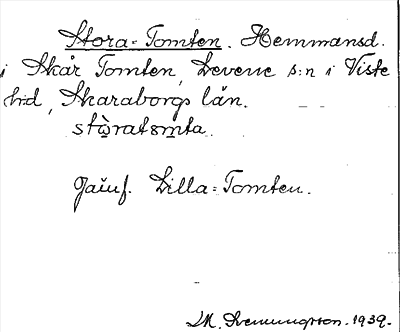 Stora=Tomten. Hemmansd.
i Skår Tomten, Levene s:n i Viste
hd, Skaraborgs län.
stὼratsm̥ta.
Jämf. Lilla=Tomten.
1939.